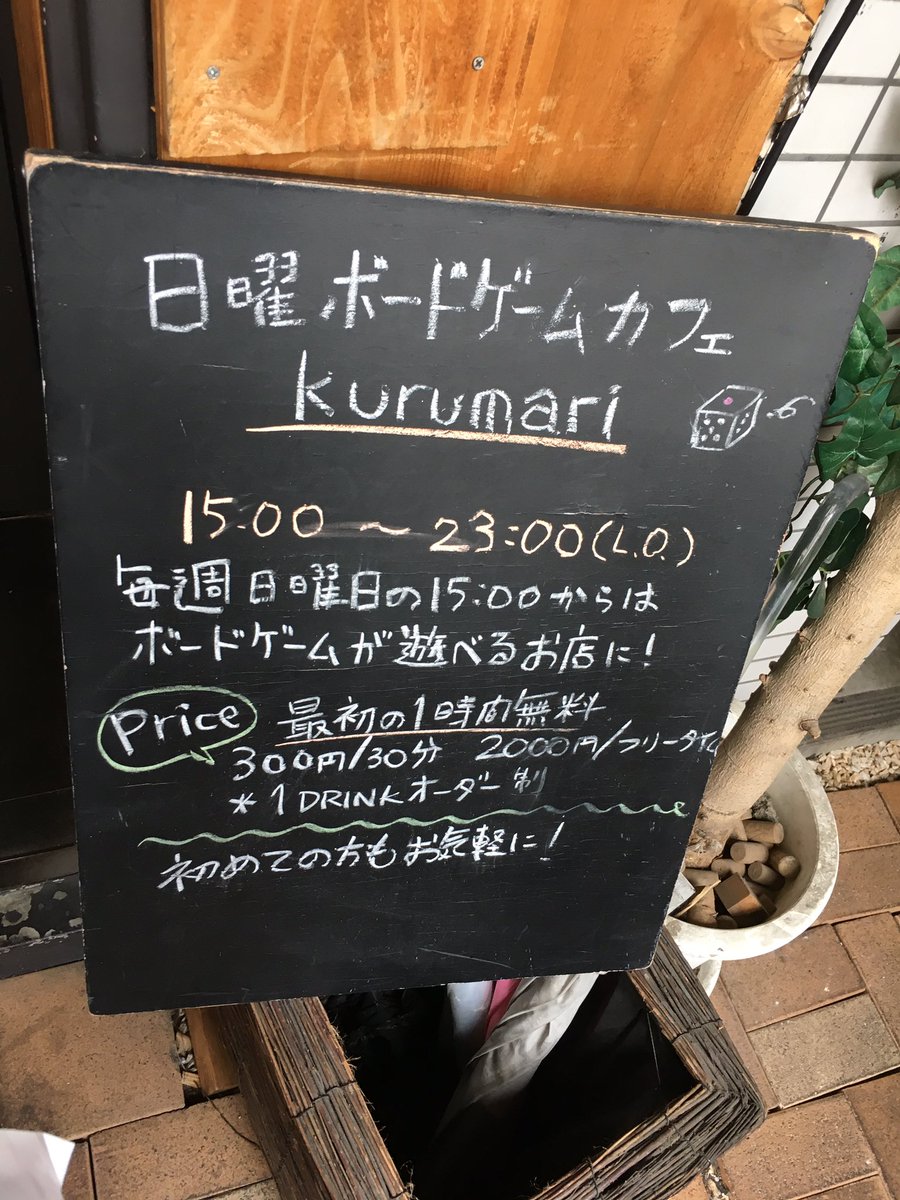 日曜ボードゲームカフェ
kurumari
15:00 〜 23:00(L.O.)
毎週日曜日の15:00からは
ボードゲームが遊べるお店に!
Price 最初の1時間無料
300円/30分 2000円/フリータイム
*1DRINKオーダー制
初めての方もお気軽に!